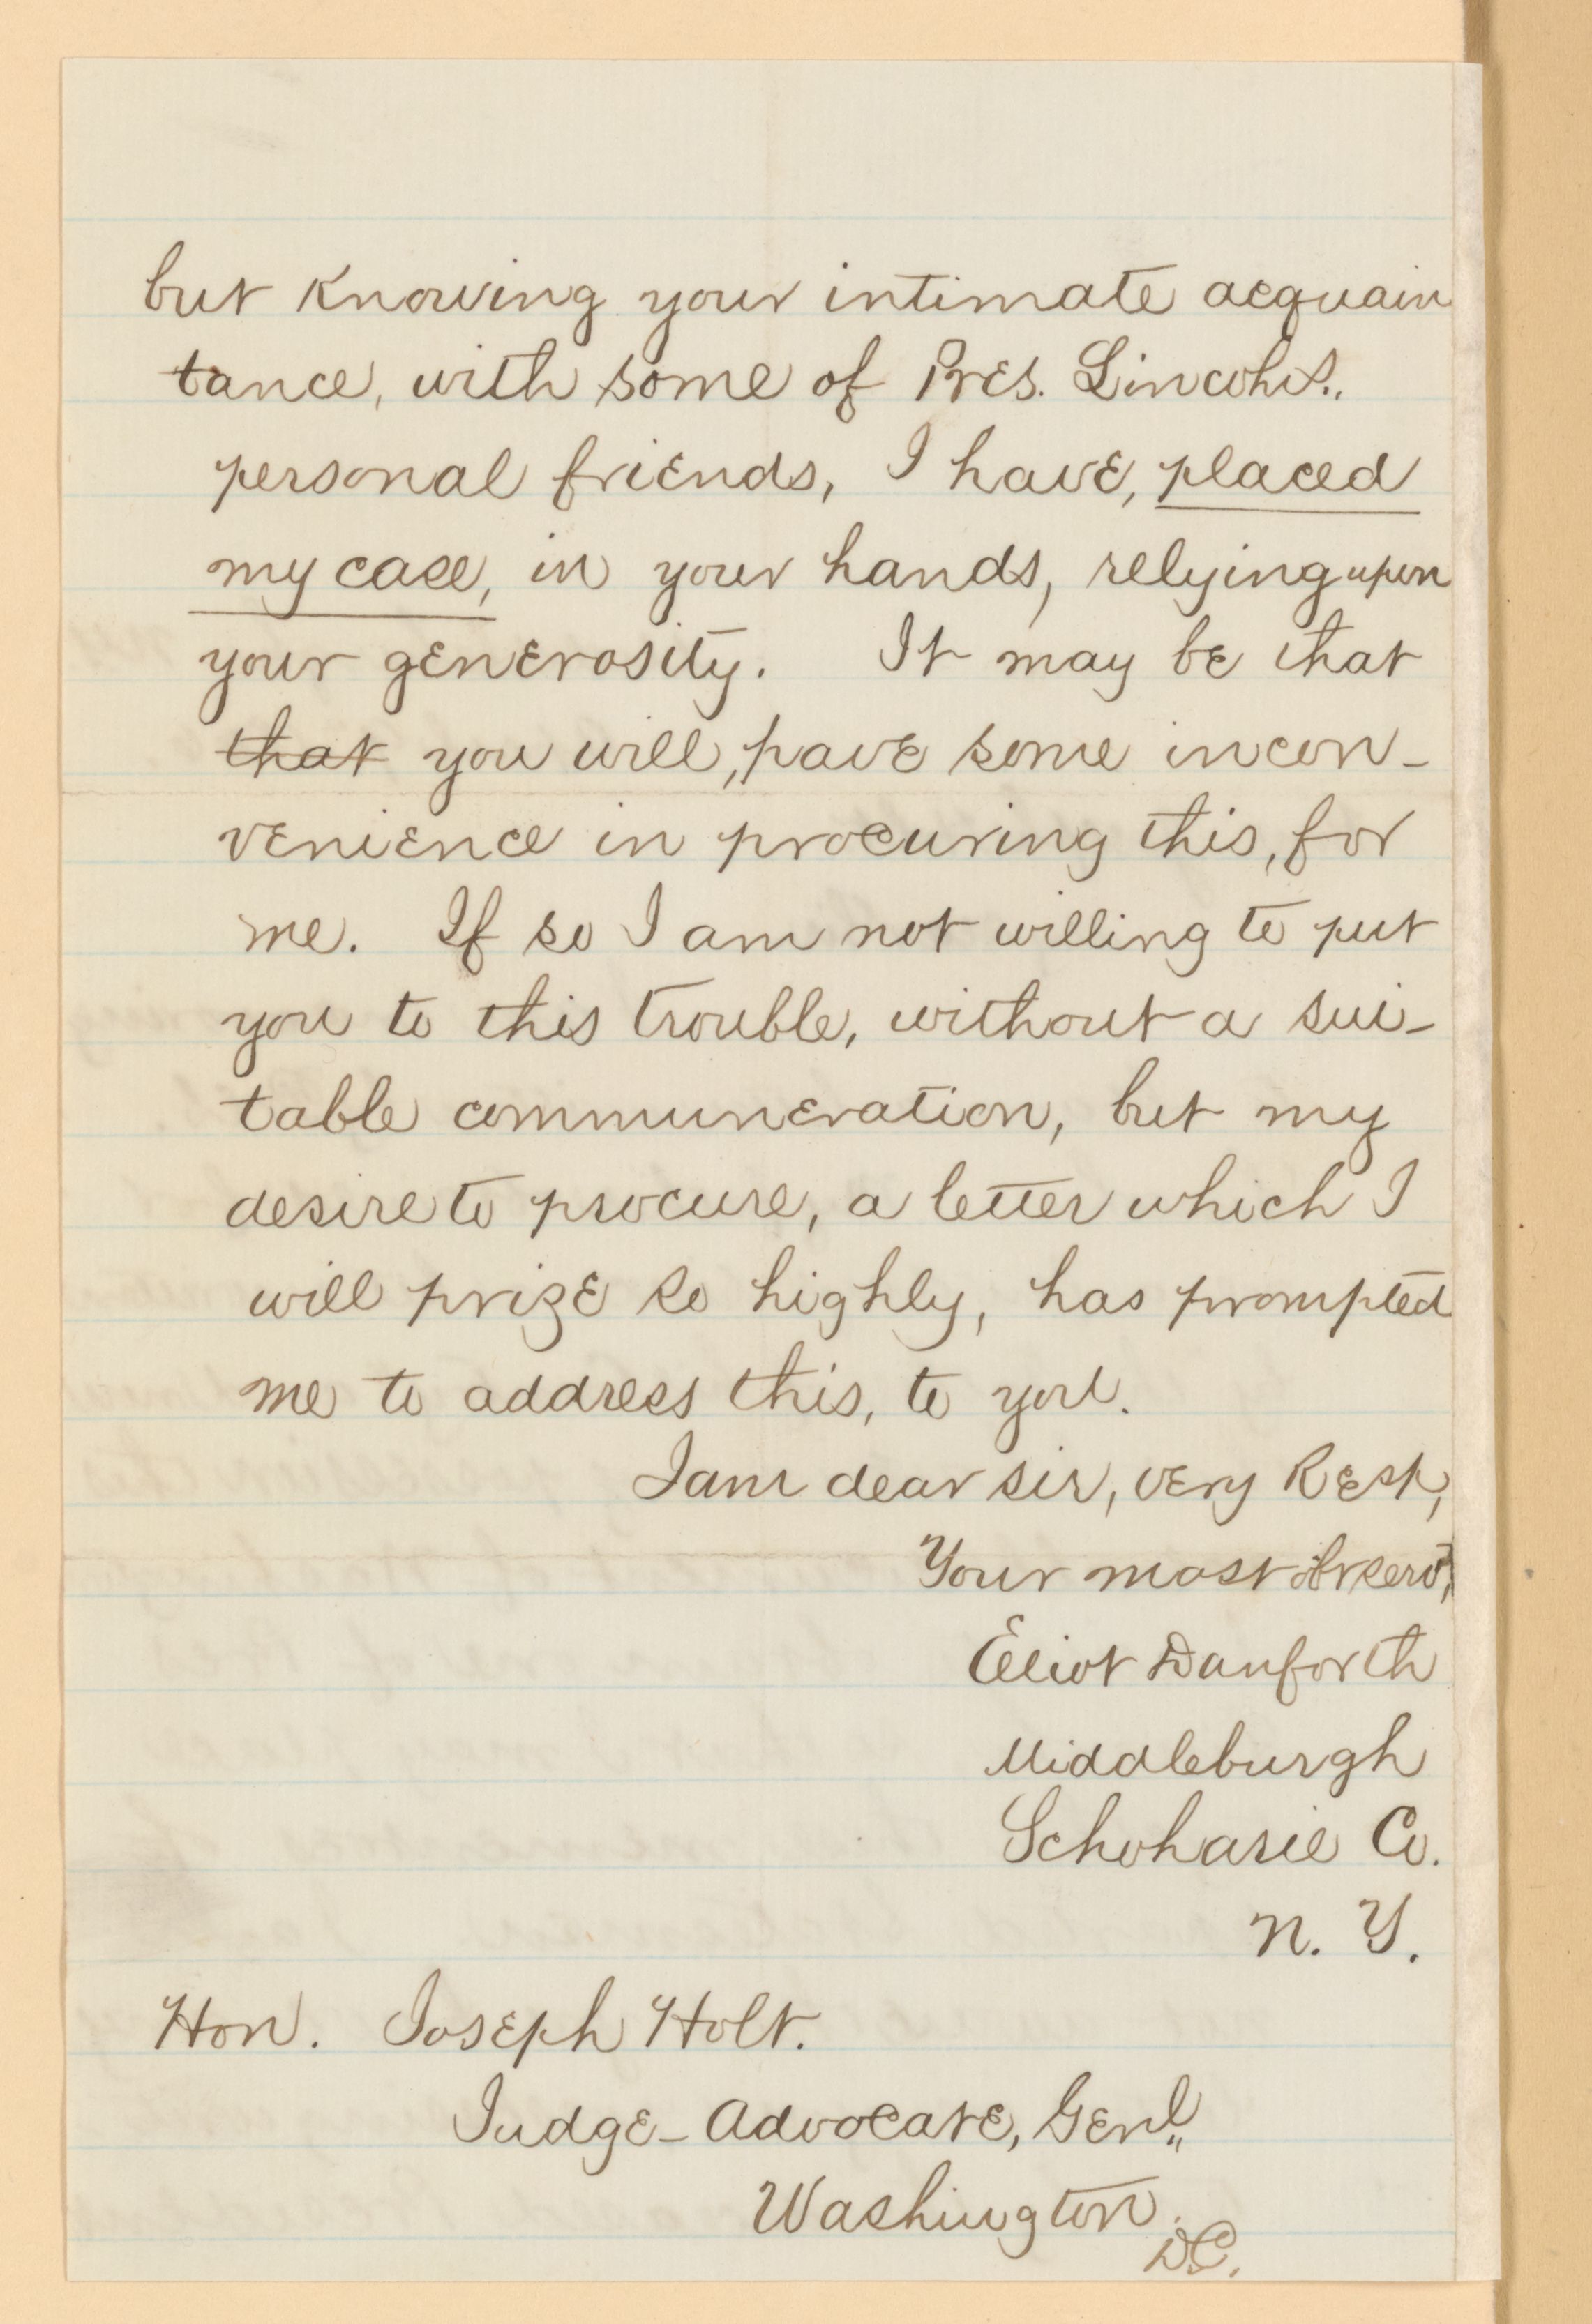 but Knowing your intimate acquain
tance, with some of Pres. Lincoln's.,
personal friends, I have, placed
my case, in your hands, relying upon
your generosity. It may be that
that you will, have some incon-
venience in procuring this, for
me. If so I am not willing to put
you to this trouble, without a sui-
table communeration, but my
desire to procure, a letter which I
will prize so highly, has prompted
me to address this, to you.
I am dear sir, very Resp,
Your most obt servt,
Eliot Danforth
Middleburgh
Schoharie Co.
N. Y.
Hon. Joseph Holt.
Judge-Advocate, Genl.,
Washington.
D.C.